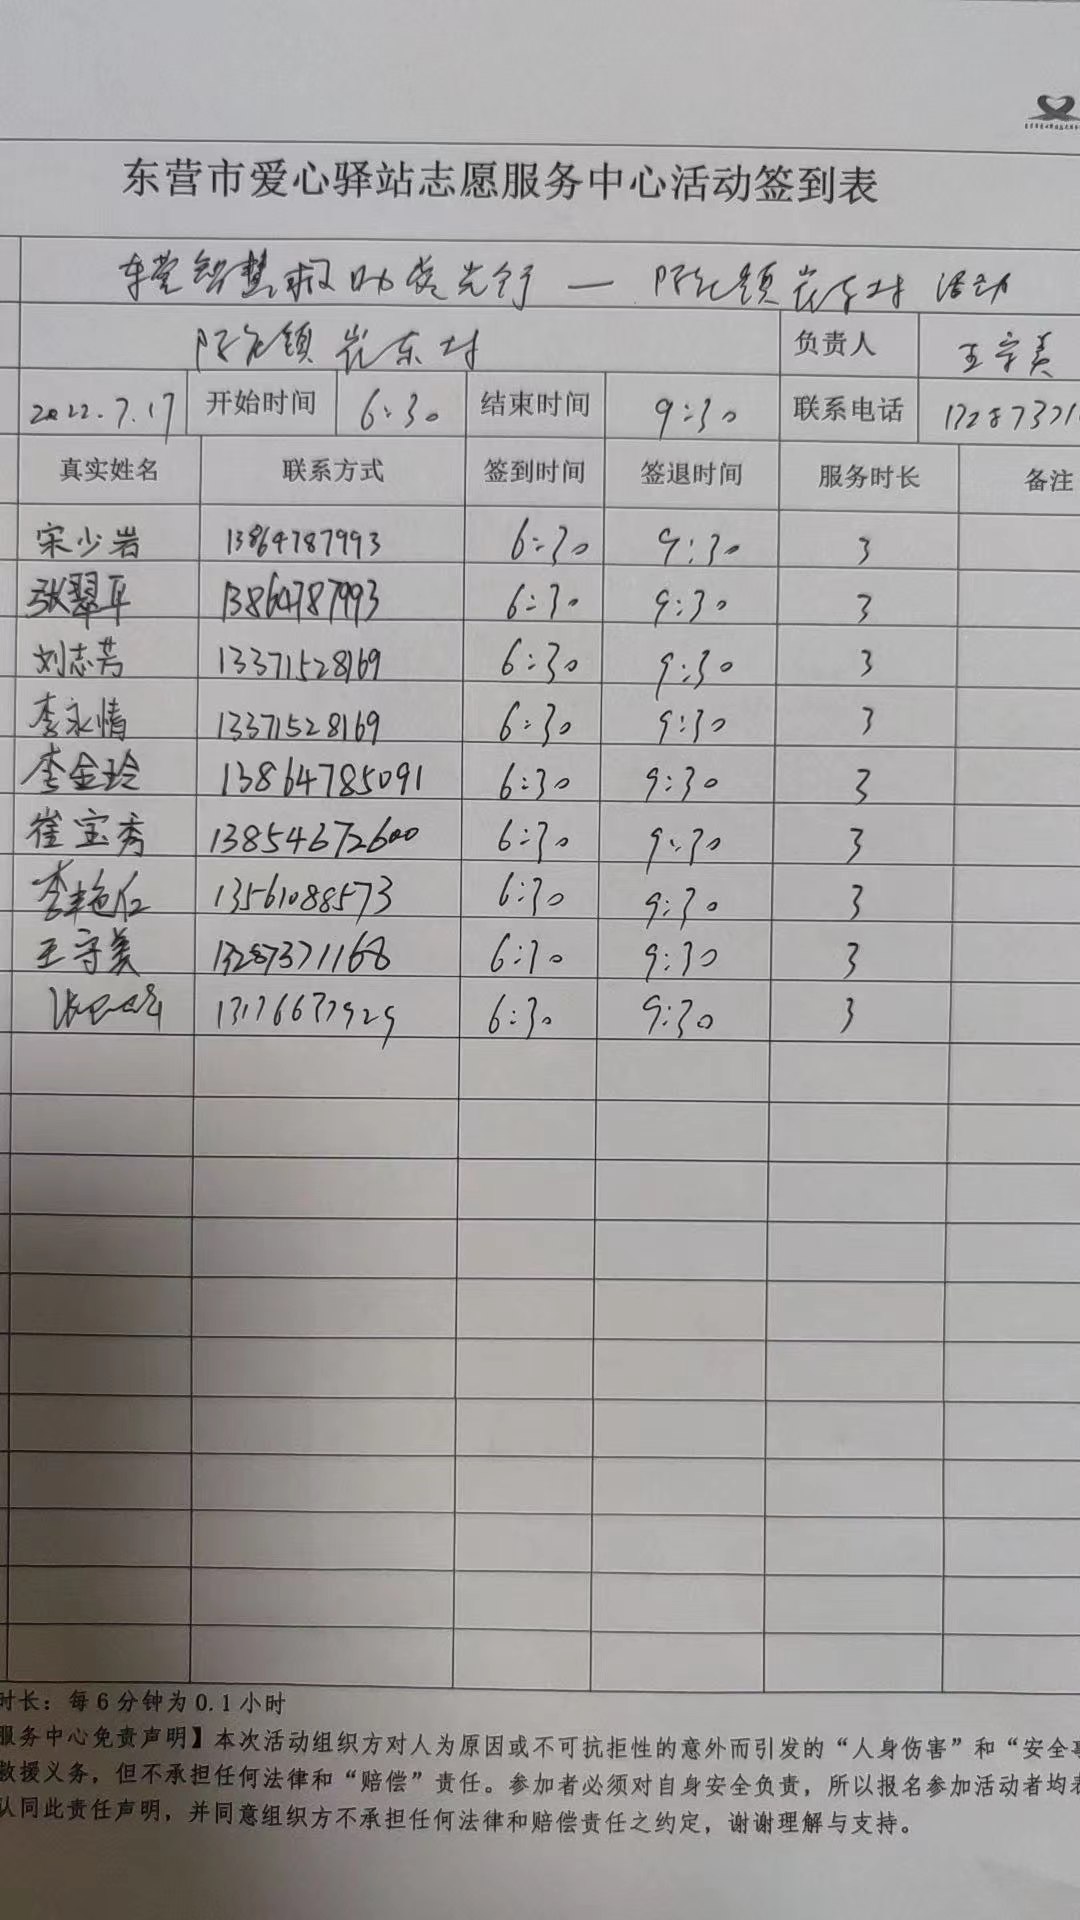 东营市爱心驿站志愿服务中心活动签到表
东营智慧救助爱先行 — 陈官镇崔东村 活动
陈官镇 崔东村 负责人 王守美
2022.7.17 开始时间 6:30 结束时间 9:30 联系电话
真实姓名 联系方式 签到时间 签退时间 服务时长 备注
宋少岩 13864787993 6:30 9:30 3
张翠平 13864787993 6:30 9:30 3
刘志芳 13371528169 6:30 9:30 3
李永情 13371528169 6:30 9:30 3
李金玲 13864785091 6:30 9:30 3
崔宝秀 13854672600 6:30 9:30 3
李艳红 13561088573 6:30 9:30 3
王守美 13287371168 6:30 9:30 3
6:30 9:30 3
时长：每6分钟为0.1小时
服务中心免责声明】本次活动组织方对人为原因或不可抗拒性的意外而引发的“人身伤害”和“安全
救援义务，但不承担任何法律和“赔偿”责任。参加者必须对自身安全负责，所以报名参加活动者均
认同此责任声明，并同意组织方不承担任何法律和赔偿责任之约定，谢谢理解与支持。